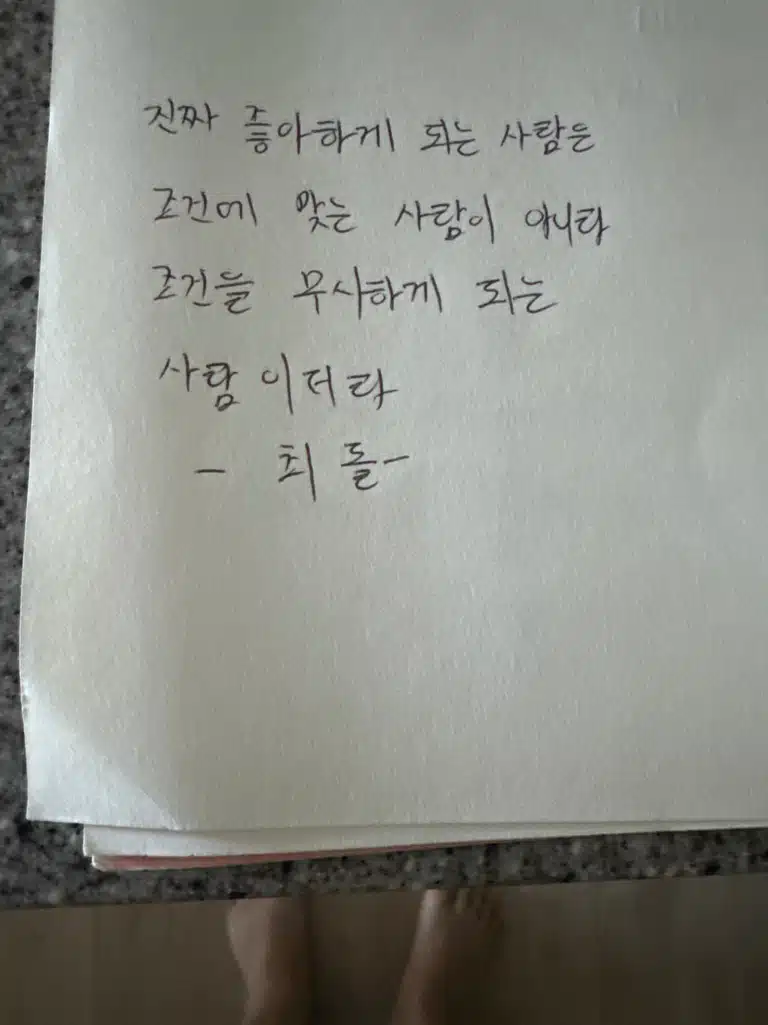 진짜 좋아하게 되는 사람은
조건에 맞는 사람이 아니라
조건을 무시하게 되는
사람이더라
- 최돌-